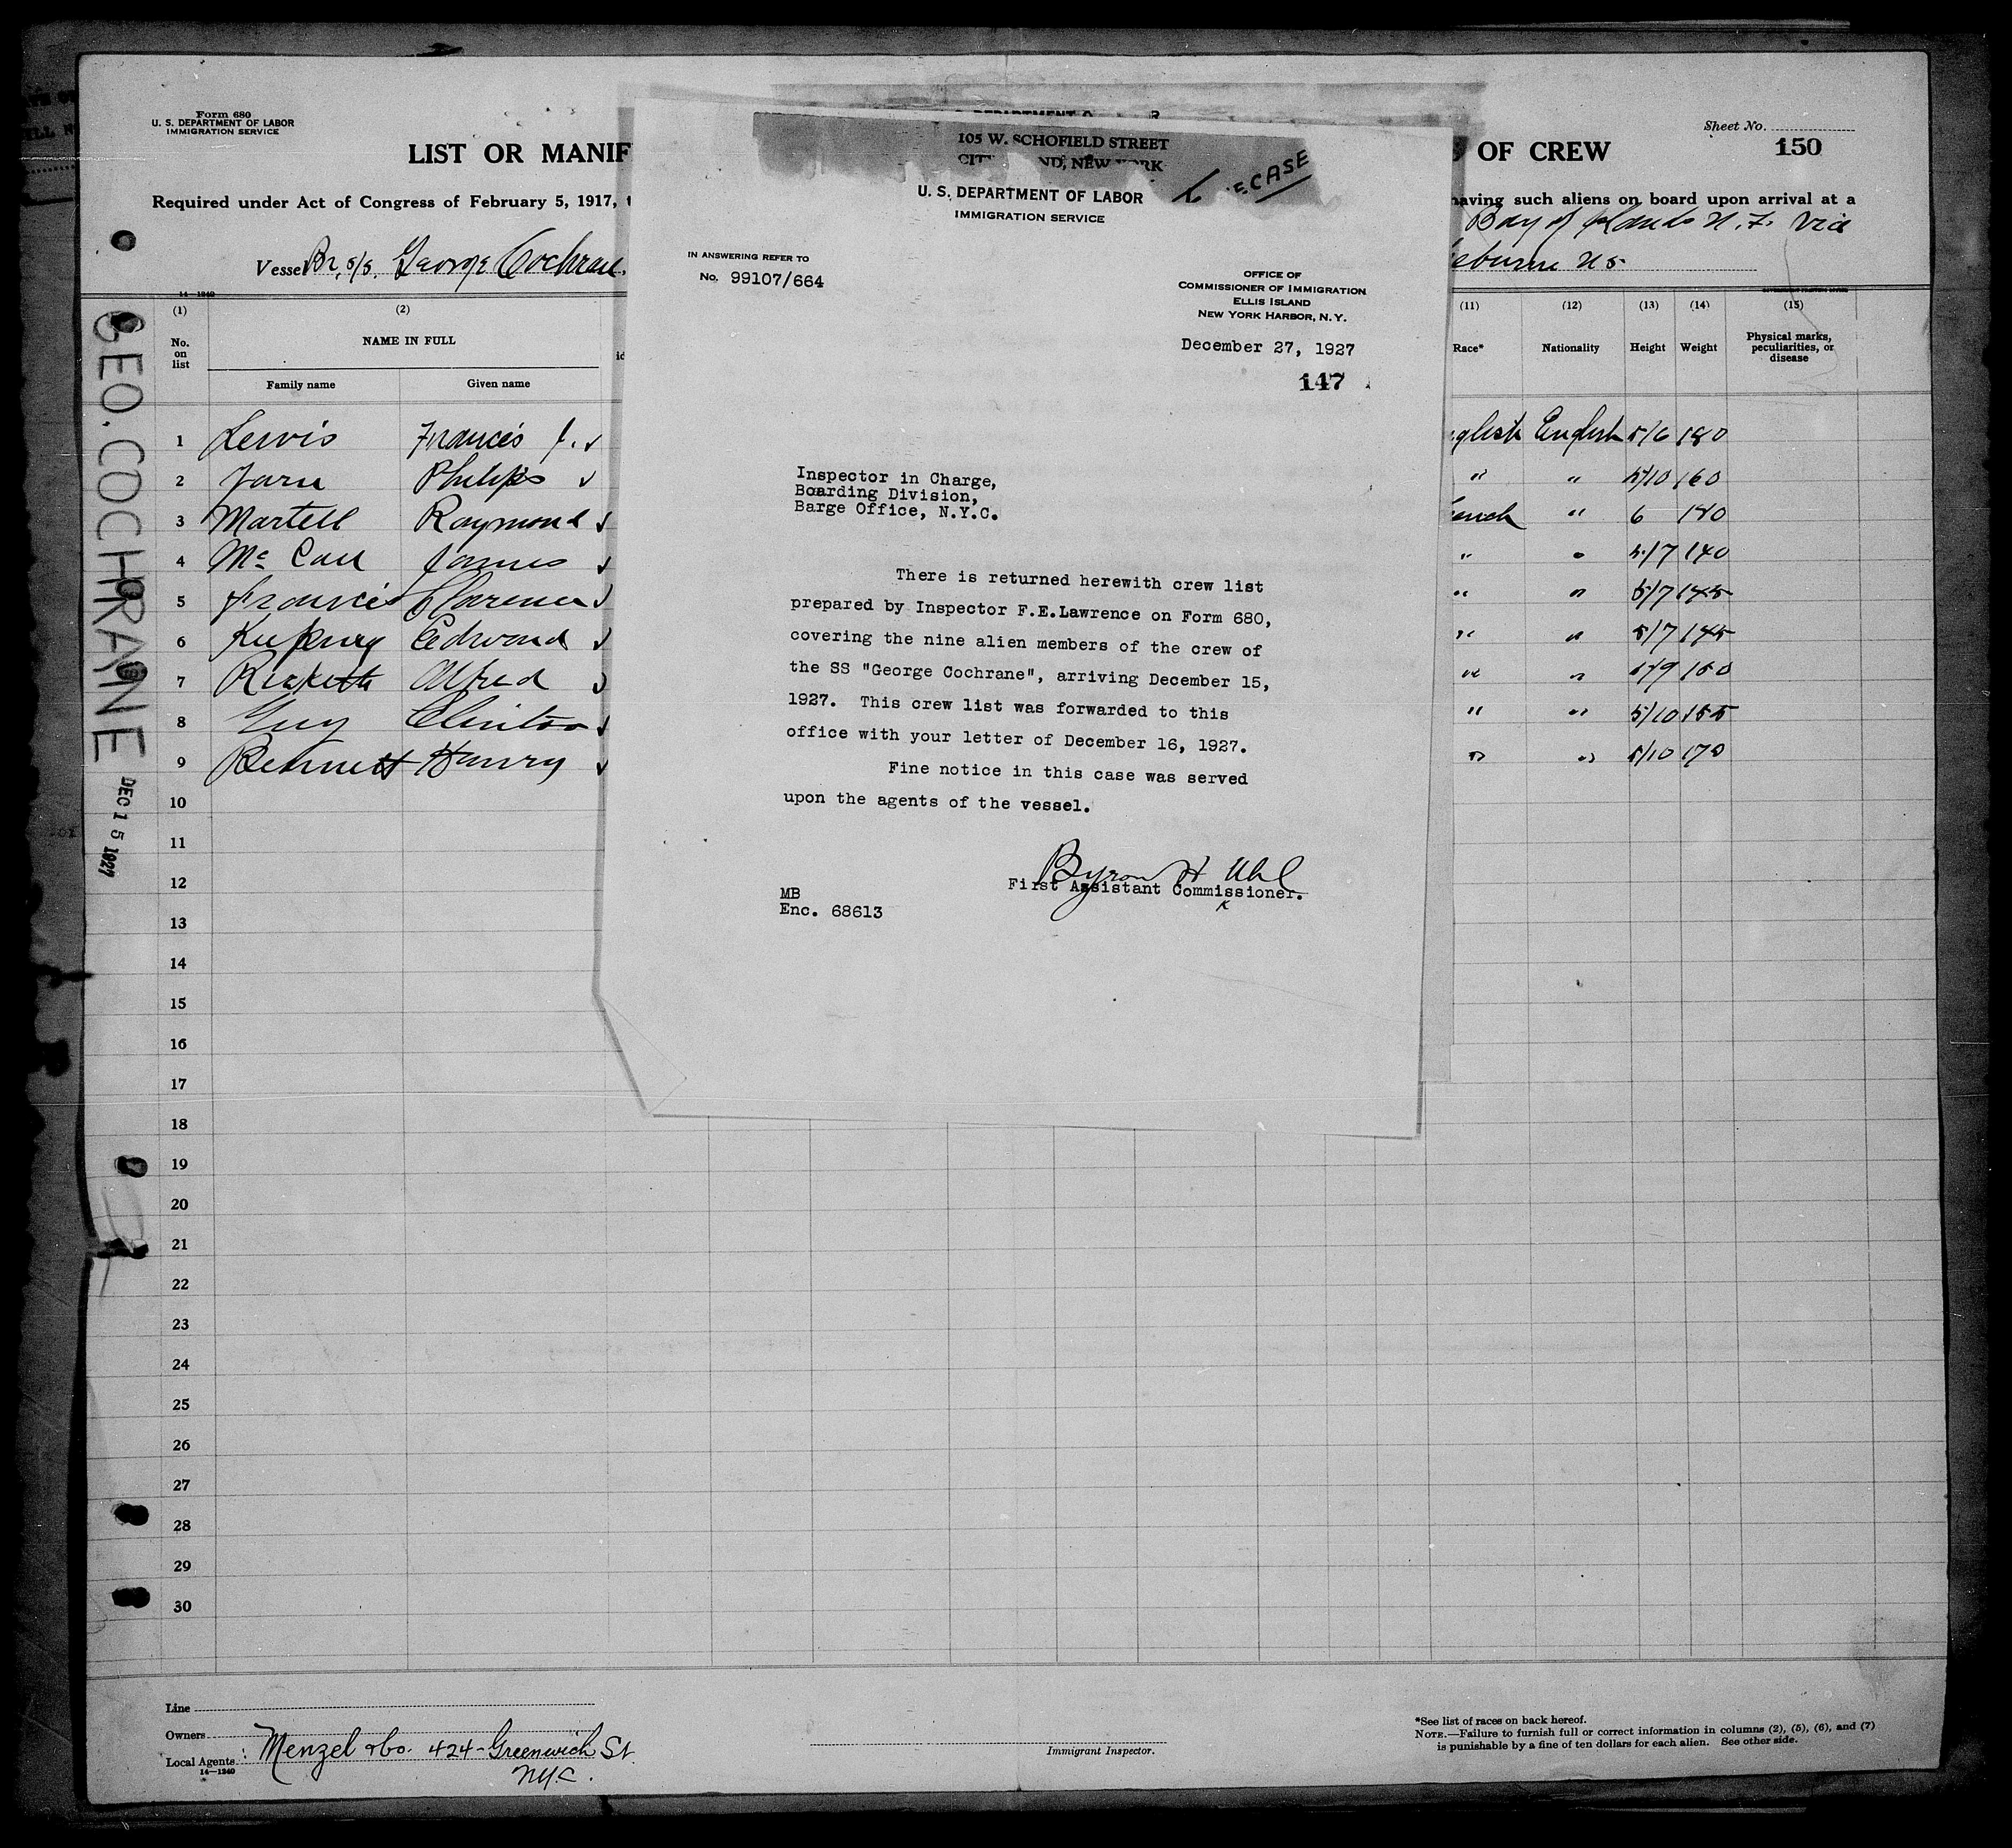 Form 680
U. S. DEPARTMENT OF LABOR
IMMIGRATION SERVICE
LIST OR MANIF
OF CREW
Sheet No.
150
Required under Act of Congress of February 5, 1917,
having such aliens on board upon arrival at a
Vessel Br. s/s. George Cochrane.
Bay of Islands N.F. via
eburne NS
14—1240
(1)
(2)
(11)
(12)
(13)
(14)
(15)
No. on list
NAME IN FULL
Family name
Given name
Race*
Nationality
Height
Weight
Physical marks, peculiarities, or disease
GEO. COCHRANE
DEC 15 1927
1 Lewis Francis J. glish English 5/6 180
2 Philip " " 5/10 160
3 Martell Raymond ench " 6 180
4 James " " 5/7 140
5 Francis Clarence " " 5/7 145
6 Edward " " 5/7 145
7 Ricketts Alfred " " 5/9 150
8 Guy Clinton " " 5/10 155
9 Bennett Harry " " 5/10 170
10
11
12
13
14
15
16
17
18
19
20
21
22
23
24
25
26
27
28
29
30
105 W. SCHOFIELD STREET
CIT ND, NEW YORK
ECASE
U. S. DEPARTMENT OF LABOR
IMMIGRATION SERVICE
IN ANSWERING REFER TO
No. 99107/664
OFFICE OF
COMMISSIONER OF IMMIGRATION
ELLIS ISLAND
NEW YORK HARBOR, N.Y.
December 27, 1927
147
Inspector in Charge,
Boarding Division,
Barge Office, N.Y.C.
There is returned herewith crew list
prepared by Inspector F.E.Lawrence on Form 680,
covering the nine alien members of the crew of
the SS "George Cochrane", arriving December 15,
1927. This crew list was forwarded to this
office with your letter of December 16, 1927.
Fine notice in this case was served
upon the agents of the vessel.
Byron H Uhl
First Assistant Commissioner.
MB
Enc. 68613
Line
Owners
Local Agents: Menzel & Co. 424-Greenwich St.
N.Y.C.
14—1240
Immigrant Inspector.
*See list of races on back hereof.
NOTE.—Failure to furnish full or correct information in columns (2), (5), (6), and (7)
is punishable by a fine of ten dollars for each alien. See other side.